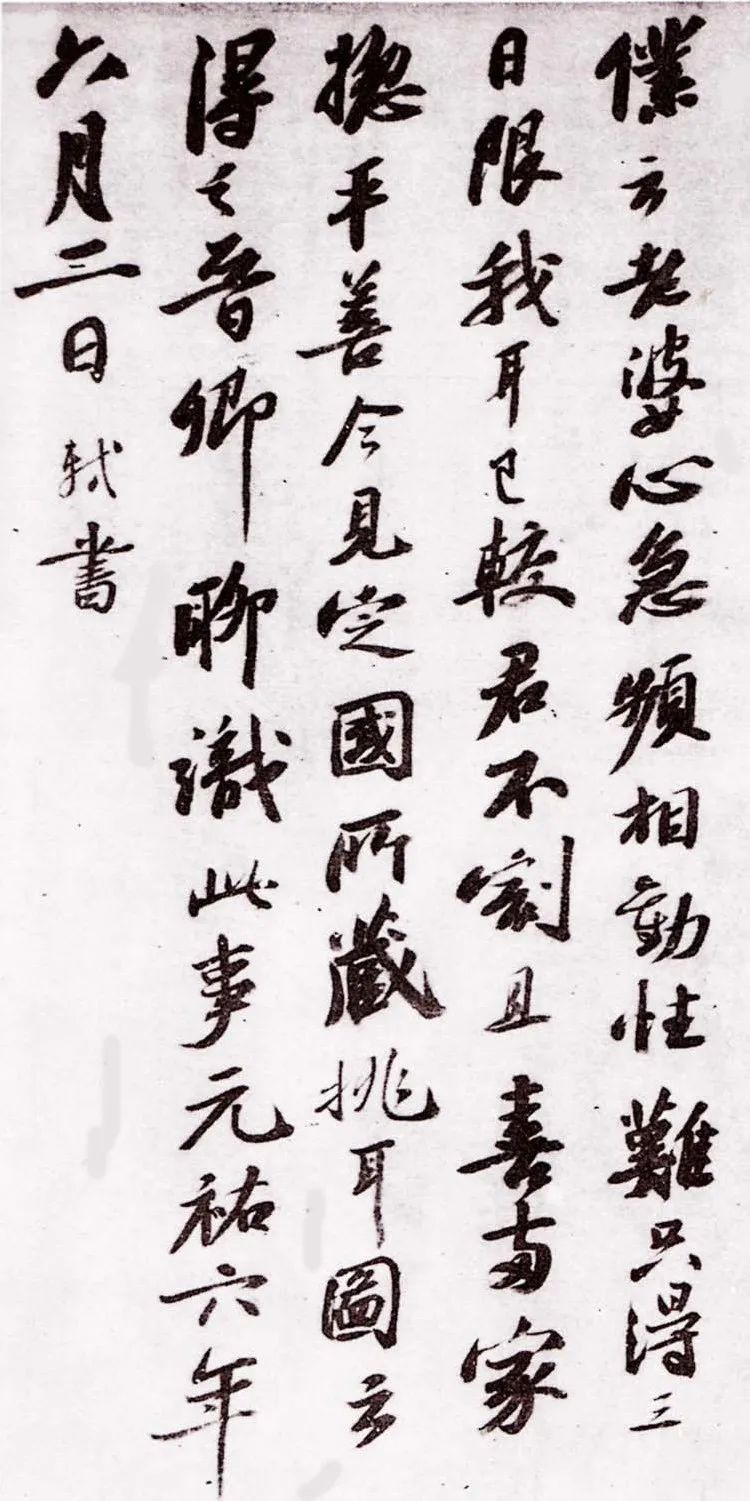 僕云老婆心急頻相勸性難只得三
日限我耳已較君不割且喜兩家
揔平善今見定國所藏挑耳圖云
得之晉卿聊識此事元祐六年
六月二日軾書